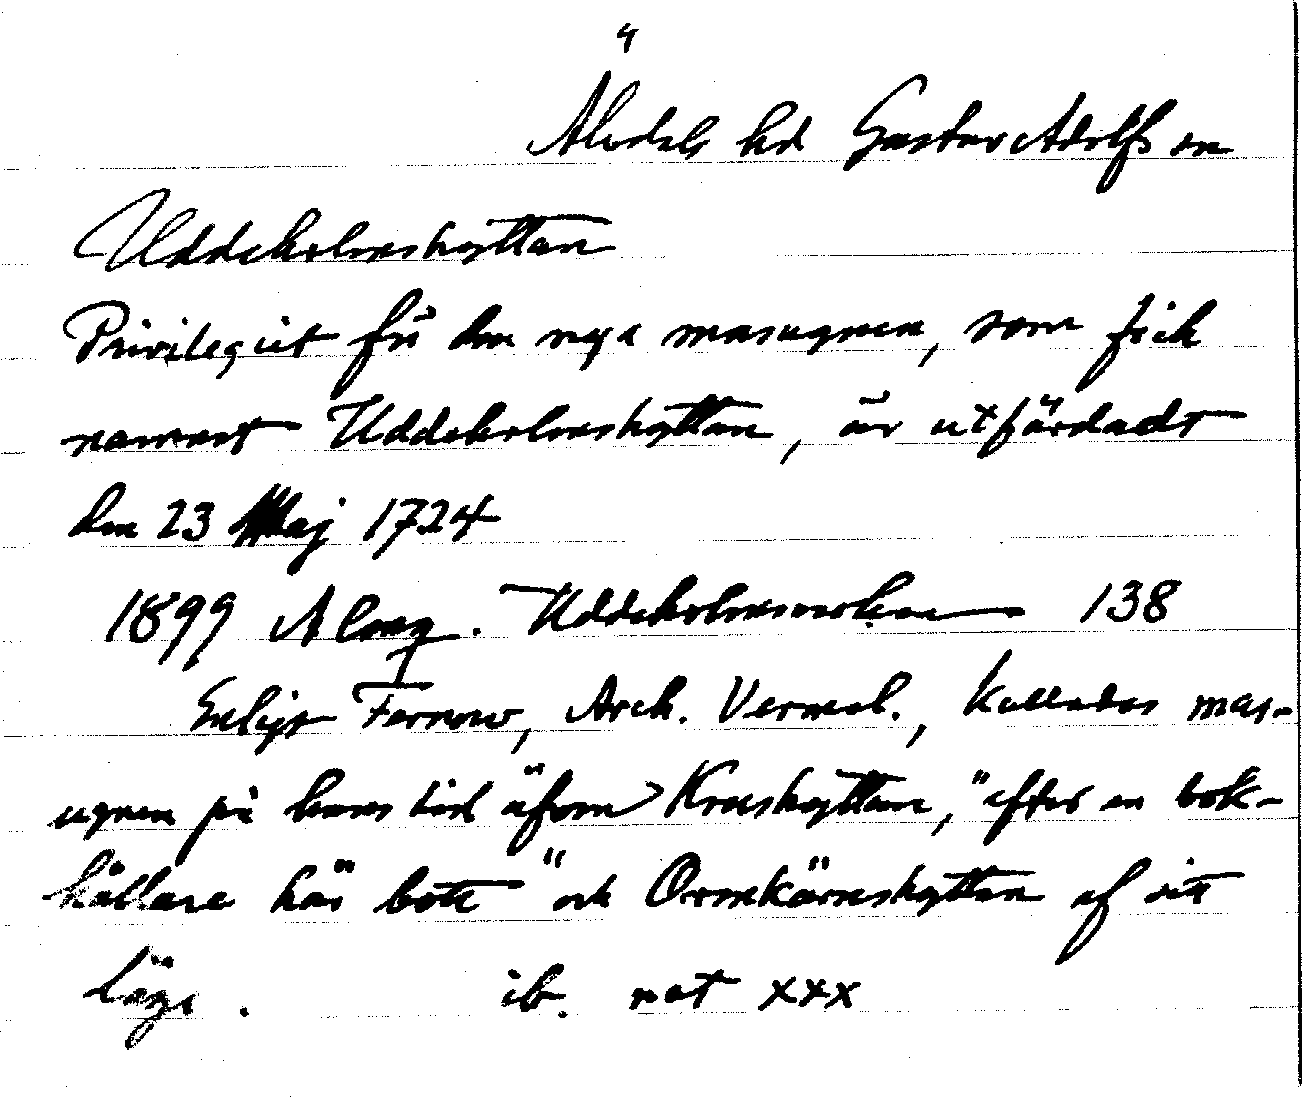 4
Älvdals hd Gustav Adolfs sn
Uddeholmshyttan
Privilegiet för den nya masugnen, som fick
namnet Uddeholmshyttan, är utfärdadt
den 23 Maj 1724
1899 Almq. Uddeholmsverken 138
Enligt Fernow, Arch. Vermel., kallades mas-
ugnen på hans tid äfven Krushyttan, "efter en bok-
hållare här bott" och Ormkärnshyttan af sitt
läge. ib. not xxx